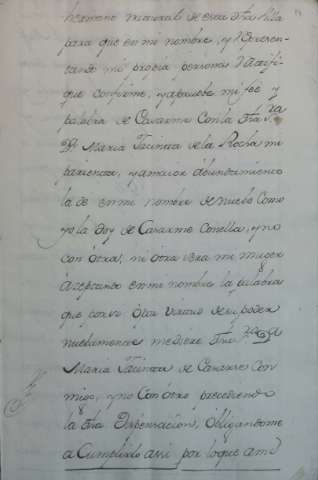 hermano natural de esta dha Villa
para que en mi nombre, y Represen-
tando mi propia persona Ratifi-
que confirme, y apruebe mi fee y
palabra de Casarme Con la dha S.ra
D.a Maria Jacinta de la Rocha mi
parienta, y a maior abundamiento
la de en mi nombre de nuebo Como
yo la doy de Casarme Con ella, y no
con otra, ni otra sera mi muger
azeptando en mi nombre la palabra
que por si o por virtud de su poder
nuebamente me diere dha S.ra D.a
Maria Jacinta de Casarse Con
migo, y no Con otro precediendo
la dha Dispensacion, obligandome
a Cumplirlo assi por lo que a mi